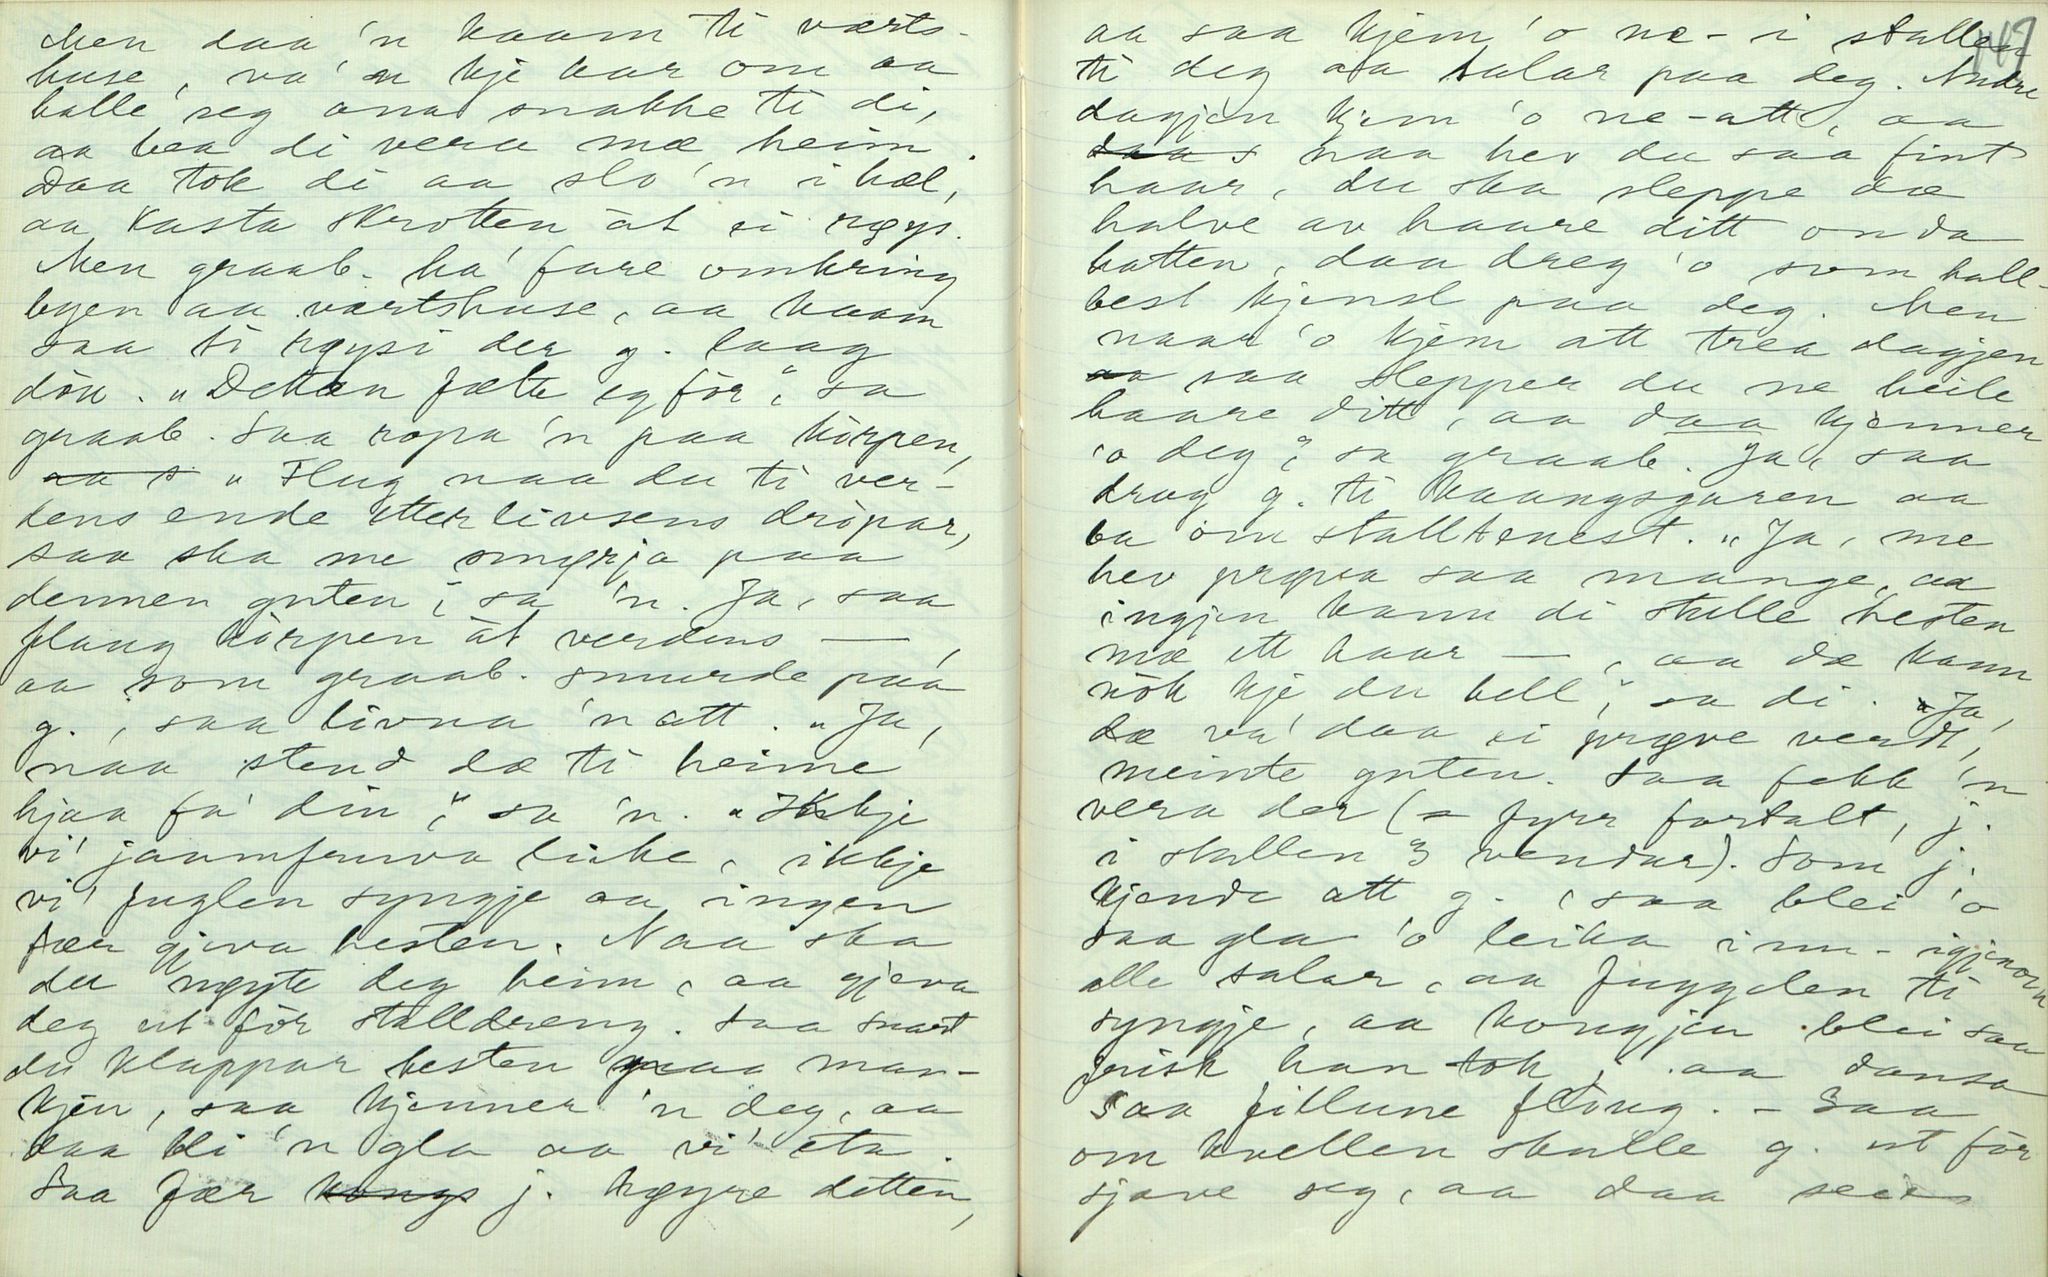 Men daa 'n kaam ti værts-
huse, va' 'n kje kar om aa
halle seg ana snakke ti di,
aa bea di vera mæ heim.
Daa tok di aa slo 'n i hæl,
aa kasta skrotten åt ei røys.
Men graab. ha' fare omkring
byen aa værtshuse, aa kaam
saa ti røysi der g. laag
dòu. „Dettan jætte eg för", sa
graab. Saa ropa 'n paa kòrpen,
„Flug naa du ti ver-
dens ende etter livsens dròpar,
saa ska me smørja paa
dennen guten", sa 'n. Ja, saa
flaug kòrpen åt verdens —,
aa som graab. smurde paa
g., saa livna 'n att. „Ja,
naa stend dæ ti heime
hjaa fa' din", sa 'n. „Ikkje
vi' jaamfruva liike, ikkje
vi' fuglen syngje aa ingen
fær gjeva hesten. Naa ska
du nøyte deg heim, aa gjeva
deg ut för stalldreng. Saa snart
du klappar hesten paa man-
kjen, saa kjenner 'n deg, aa
daa bli 'n gla aa vi' eta.
Saa fær kongs j. høyre detten,
149
aa saa kjem 'o ne- i stallen
ti deg aa talar paa deg. Andre
dagjen kjem 'o ne-att, aa
naa hev du saa fint
haar, du ska sleppe dæ
halve av haare ditt onda
hatten, daa dreg 'o som hall-
best kjensl paa deg. Men
naar 'o kjem att trea dagjen
saa slepper du ne heile
haare ditt, aa daa kjenner
'o deg", sa graab. Ja, saa
drog g. ti kaangsgaren aa
ba om stalltenest. „Ja, me
hev prøva saa mange, aa
ingjen kann di stelle hesten
mæ ett haar —, aa dæ kann
nòk kje du hell", sa di. „Ja,
dæ va' daa ei prøve verdt,
meinte guten. Saa fekk 'n
vera der (= fyrr fortalt, j.
i stallen 3 vendur). Som j.
kjende att g., saa blei 'o
saa gla 'o leika inn- igjenom
alle salar, aa fuggelen ti
syngje, aa kongjen blei saa
frisk han tok, aa dansa
saa fillune flòug. – Saa
om kvellen skulle g. ut för
sjave seg, aa daa seies